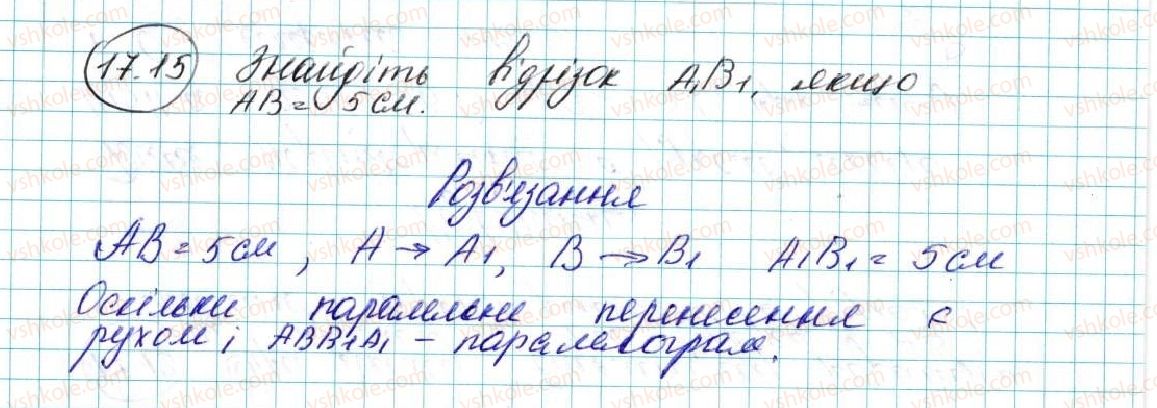 17.15 Знайдіть відрізок A₁B₁, якщо
AB = 5 см.
Розв'язання
AB = 5 см, A → A₁, B → B₁ A₁B₁ = 5 см
Оскільки паралельне перенесення є
рухом, ABB₁A₁ – паралелограм.